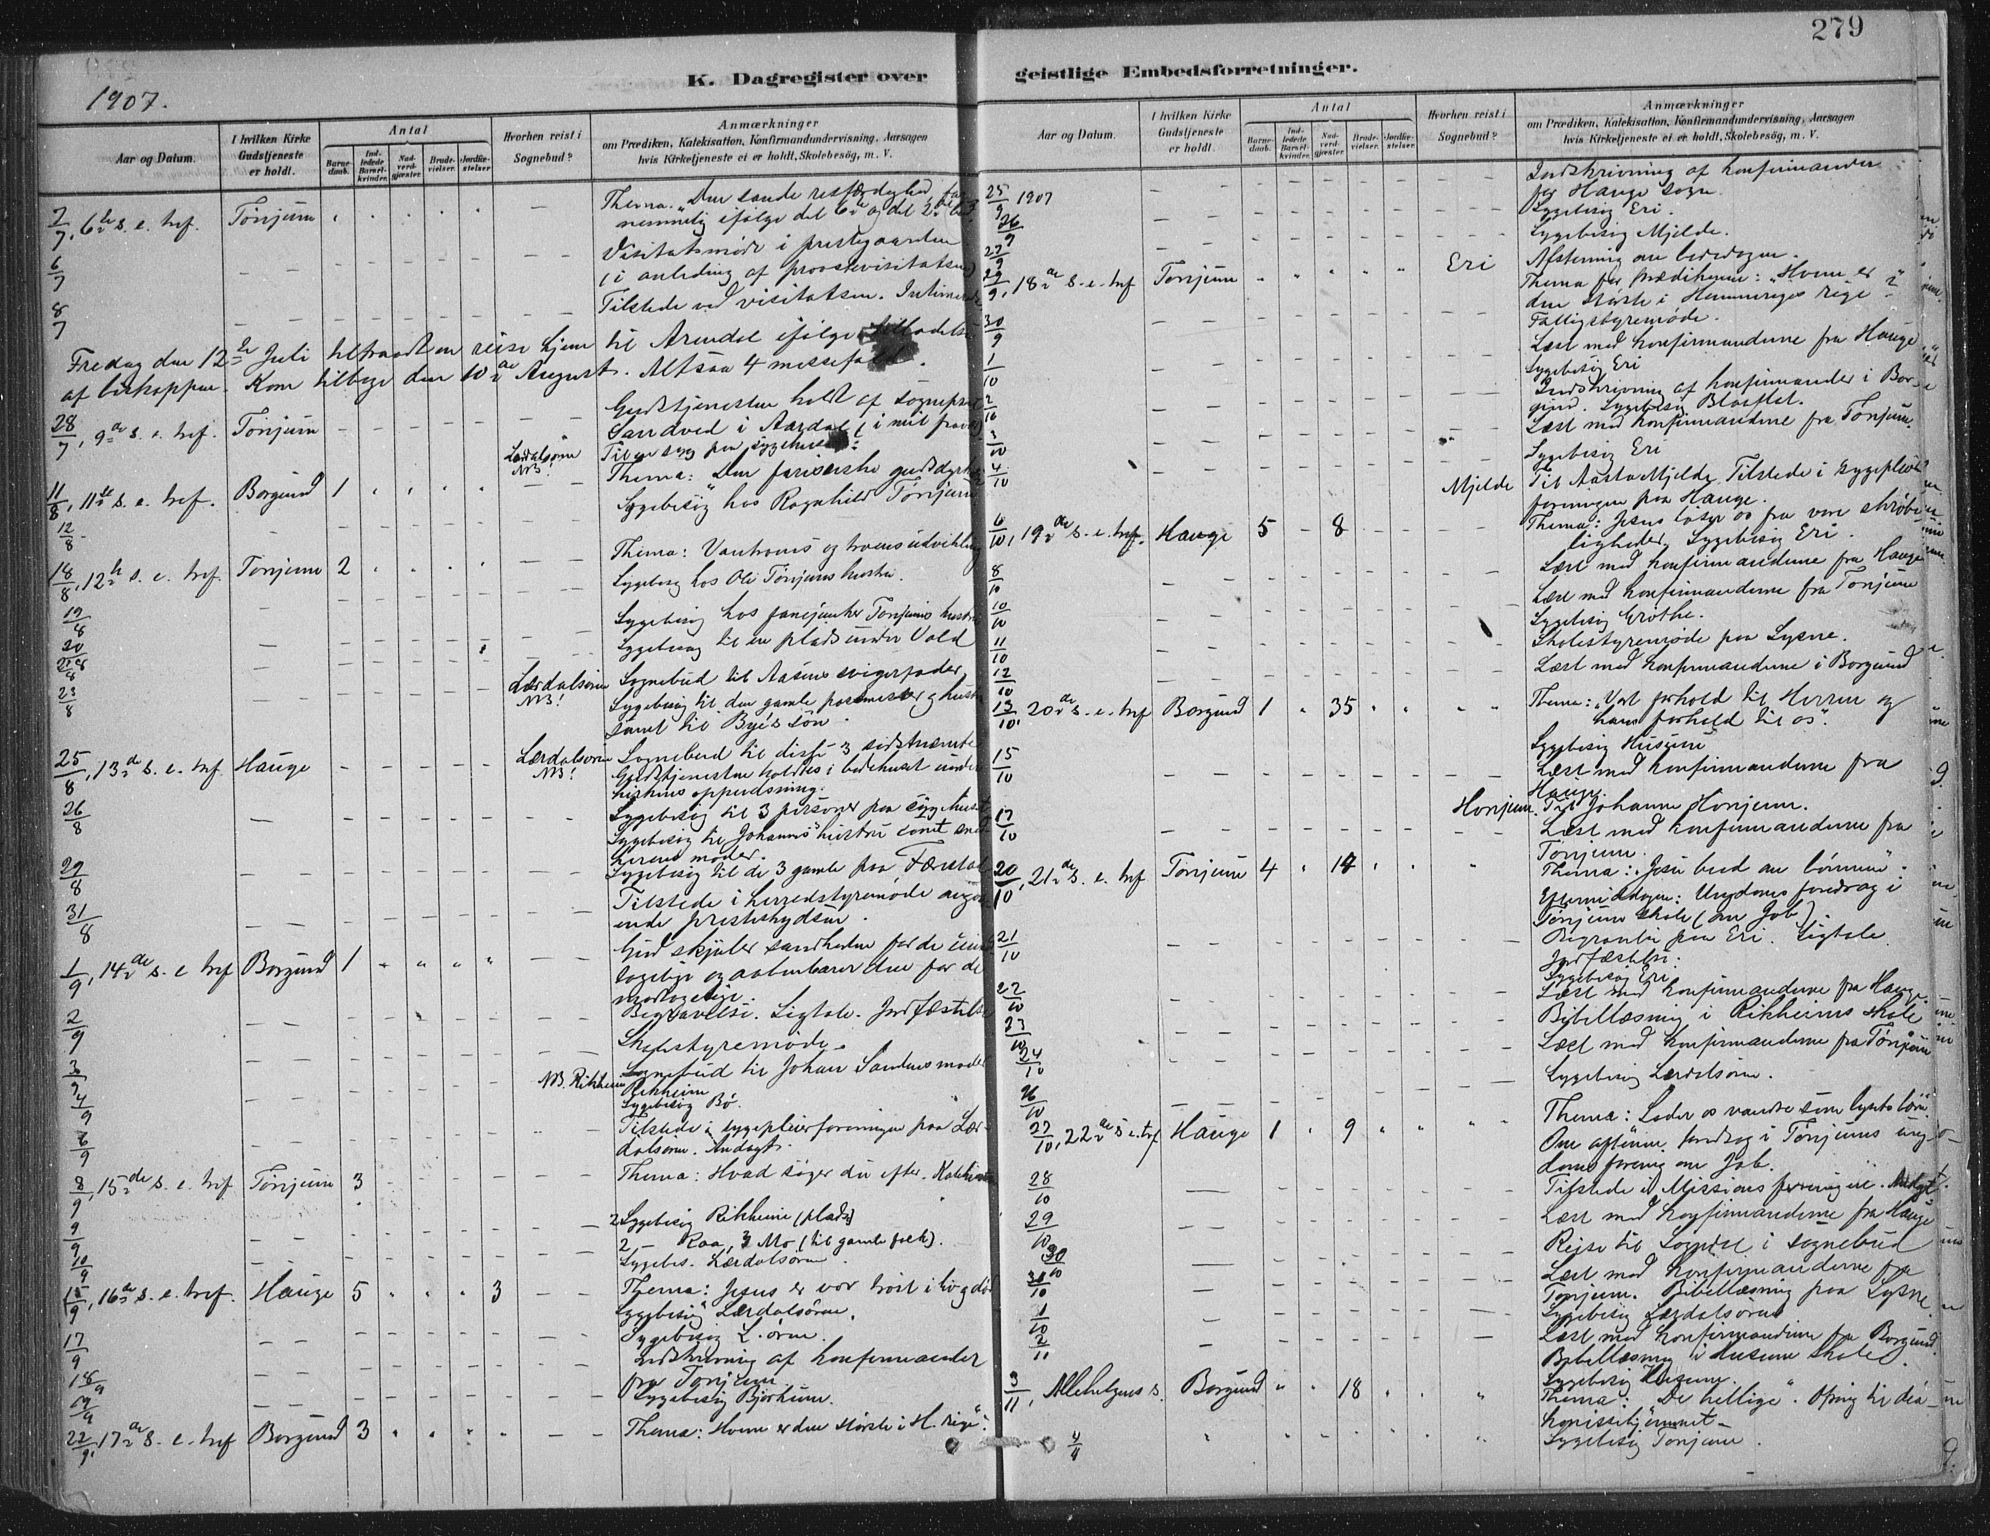 279
K. Dagregister over geistlige Embedsforretninger.
1907.
Aar og Datum.
I hvilken Kirke Gudstjeneste er holdt.
Antal
Barne-daab.
Ind-ledede Barsel-kvinder.
Nad-verd-gjæster.
Brude-vielser.
Jordfæ-stelser.
Hvorhen reist i Sognebud?
Anmærkninger
om Prædiken, Katekisation, Konfirmandundervisning, Aarsagen
hvis Kirketjeneste ei er holdt, Skolebesøg, m. V.
7/7, 6te s. e. tref. Tønjum Thema: "Den sande retfærdighed
nemmelig ifølge det 6te og det 2det
6/7 Visitatsmøde i prestegaarden
(i anleding af proostevisitatsen)
8/7 Tilstede ved visitatsen.
Fredag den 12te Juli tiltraadt en reise hjem til Arendal ifølge tilladelse
af biskoppen. Kom tilbage den 10de August. Altsaa 4 messefald.
28/7, 9de s. e. tref. Tønjum Gudstjenesten holdt af sogneprest
Sandved i Aardal (i mit fravær)
Lærdalsøren NB! Til en syg paa sygehuset
11/8, 11te s. e. tref. Borgund 1 Thema: Den fariseiske gudsdyrkelse
12/8 Sygebesøg hos Ragnhild Tønjum
18/8, 12te s. e. tref. Tønjum 2 Thema: Vantroens og troens udvikling
Sygebesøg hos Ole Tønjums hustru.
19/8 Sygebesøg hos fanejunker Tønjums hustru
20/8 Sygebesøg til en plads under Vold
Lærdalsøren NB! Sognebud til Aasens svigerfader
23/8 Sygebesøg til den gamle postmester og hustru
samt til Byes søn.
25/8, 13de s. e. tref. Hauge Lærdalsøren NB! Sognebud til disse 3 sidstnævnte
Gudstjenesten holdtes i bedehuset under
kirkens oppudsning.
26/8 Sygebesøg til 3 personer paa sygehuset
Sygebesøg til Johannes hustru samt
moder.
29/8 Sygebesøg til de 3 gamle paa
31/8 Tilstede i herredstyremøde
ende presteskydsen.
1/9, 14de s. e. tref Borgund 1 Gud skjuler sandheden for de
og aabenbarer den for de
modtagelige.
2/9 Begravelse. Ligtale. Jordfæstelse
3/9 Skolestyremøde.
NB. Rikheim Sognebud til Johan Sandens moder
Rikheim
4/9 Sygebesøg Bø.
6/9 Tilstede i sygepleierforeningen paa Lær-
dalsøren. Andagt.
8/9, 15de s. e. tref Tønjum 3 Thema: Hvad søger du efter.
9/9 2 Sygebesøg Rikheim (plads)
2 — Raa, 3 Mo (til gamle folk).
10/9 Sygebes. Lærdalsøren.
15/9, 16de s. e. tref. Hauge 5 3 Thema: Jesus er vor trøst i liv og død
Sygebesøg Lærdalsøren.
17/9 Sygebesøg L.øren.
18/9 Indskrivning af konfirmander
fra Tønjum.
19/9 Sygebesøg Bjørkum.
22/9, 17de s. e. tref Borgund 3 Thema: Hvem er den største i H. rige?
Aar og Datum.
I hvilken Kirke Gudstjeneste er holdt.
Antal
Barne-daab.
Ind-ledede Barsel-kvinder.
Nad-verd-gjæster.
Brude-vielser.
Jordfæ-stelser.
Hvorhen reist i Sognebud?
Anmærkninger
om Prædiken, Katekisation, Konfirmandundervisning, Aarsagen
hvis Kirketjeneste ei er holdt, Skolebesøg, m. V.
25/9 1907 Indskrivning af konfirmander
for Hauge sogn.
Sygebesøg Eri.
26/9 Sygebesøg Mjelde.
27/9 Afstemning om bededagen.
29/9, 18de s. e. tref Tønjum Eri Thema for prædikenen: "Hvem er
den største i Himmeriges rige?"
30/9 Fattigstyremøde.
Læst med konfirmanderne fra Hauge
1/10 Sygebesøg Eri
2/10 Indskrivning af konfirmander i Bor-
gund. Sygebesøg Blaaflat.
3/10 Læst med konfirmanderne fra Tønjum.
Sygebesøg Eri
4/10 Mjelde Til Aasta Mjelde. Tilstede i sygepleie-
foreningen paa Hauge.
6/10, 19de s. e. tref. Hauge 5 8 Thema: Jesus løser os fra vore skrøbe-
ligheder. Sygebesøg Eri.
8/10 Læst med konfirmanderne fra Hauge
10/10 Læst med konfirmanderne fra Tønjum
Sygebesøg Grøthe.
11/10 Skolestyremøde paa Lysne.
12/10 Læst med konfirmanderne i Borgund
13/10, 20de s. e. tref Borgund 1 35 Thema: "Vort forhold til Herren og
hans forhold til os".
15/10 Sygebesøg Husum
Læst med konfirmanderne fra
Hauge.
17/10 Honjum. Til Johanne Honjum.
Læst med konfirmanderne fra
Tønjum.
20/10, 21de s. e. tref Tønjum 4 14 Thema: "Jesu bud om bønnen".
Eftermiddagen: Ungdoms foredrag i
Tønjums skole (om Job).
21/10 Begravelse paa Eri. Ligtale.
Jordfæstelse.
Sygebesøg Eri
22/10 Læst med konfirmanderne fra Hauge.
23/10 Bibellæsning i Rikheims skole
24/10 Læst med konfirmanderne fra Tønjum
26/10 Sygebesøg Lærdalsøren.
27/10, 22de s. e. tref Hauge 1 9 Thema: Lader os vandre som lysets børn.
Om aftenen foredrag i Tønjums ung-
domsforening om Job.
28/10 Tilstede i Missionsforeningen. Andagt.
29/10 Læst med konfirmanderne fra Hauge
30/10 Reise til i sognebud
31/10 Læst med konfirmanderne fra
Tønjum. Bibellæsning paa Lysne.
1/10 Sygebesøg Lærdalsøren
2/11 Læst med konfirmanderne fra Borgund.
Bibellæsning i Husum skole.
Sygebesøg Husum.
3/11, Allehelgens s. Borgund 18 Thema: "De hellige". Ofring til dia-
konissehjemmet.
4/11 Sygebesøg Tønjum.